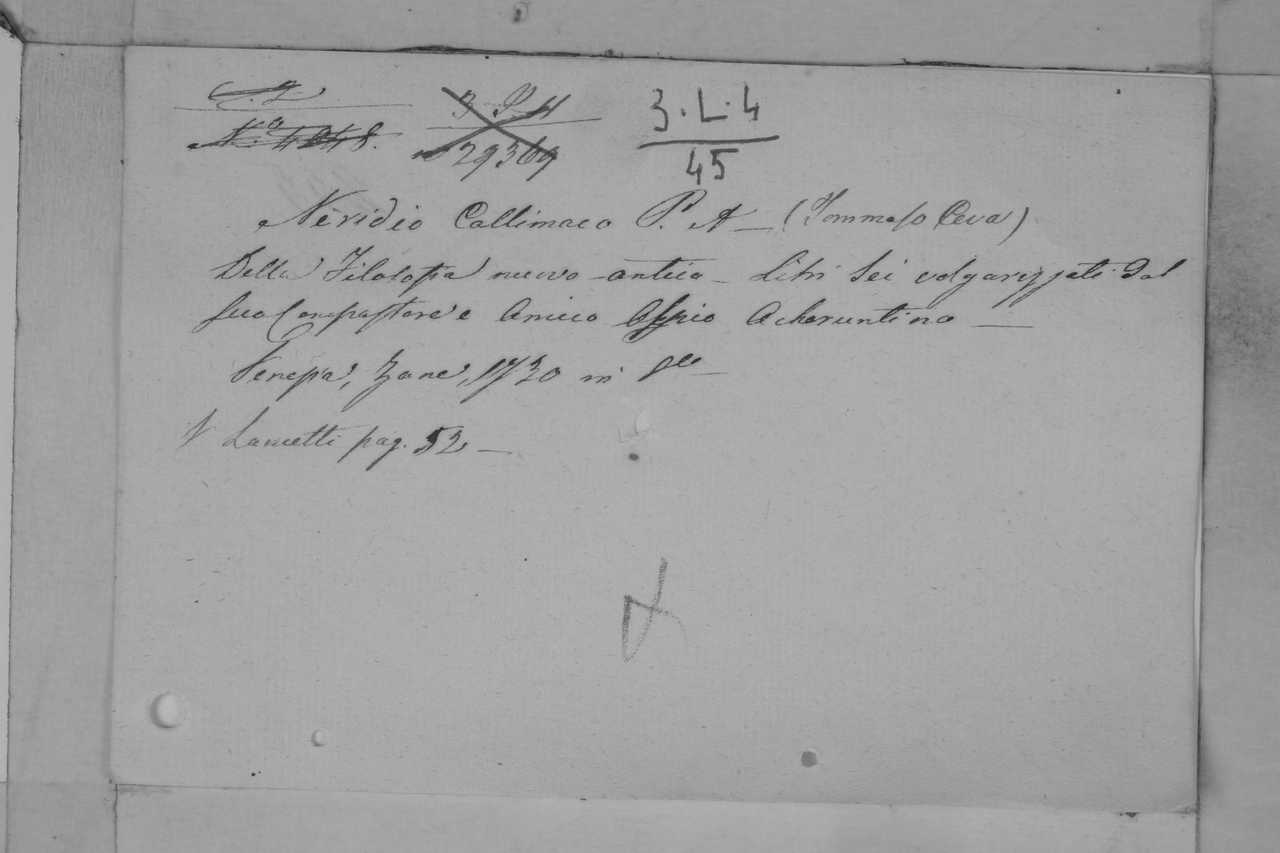 C. 2
N.º 4048.
3 P. 4
29369
3.L.4
45
Neridio Callimaco P. A — (Tommaso Ceva)
Della Filosofia nuovo-antica — Libri Sei volgarizzati dal
suo Compastore e Amico Acheruntino —
Venezia, Zane, 1730 in 8.º —
V Lancetti pag. 52 —